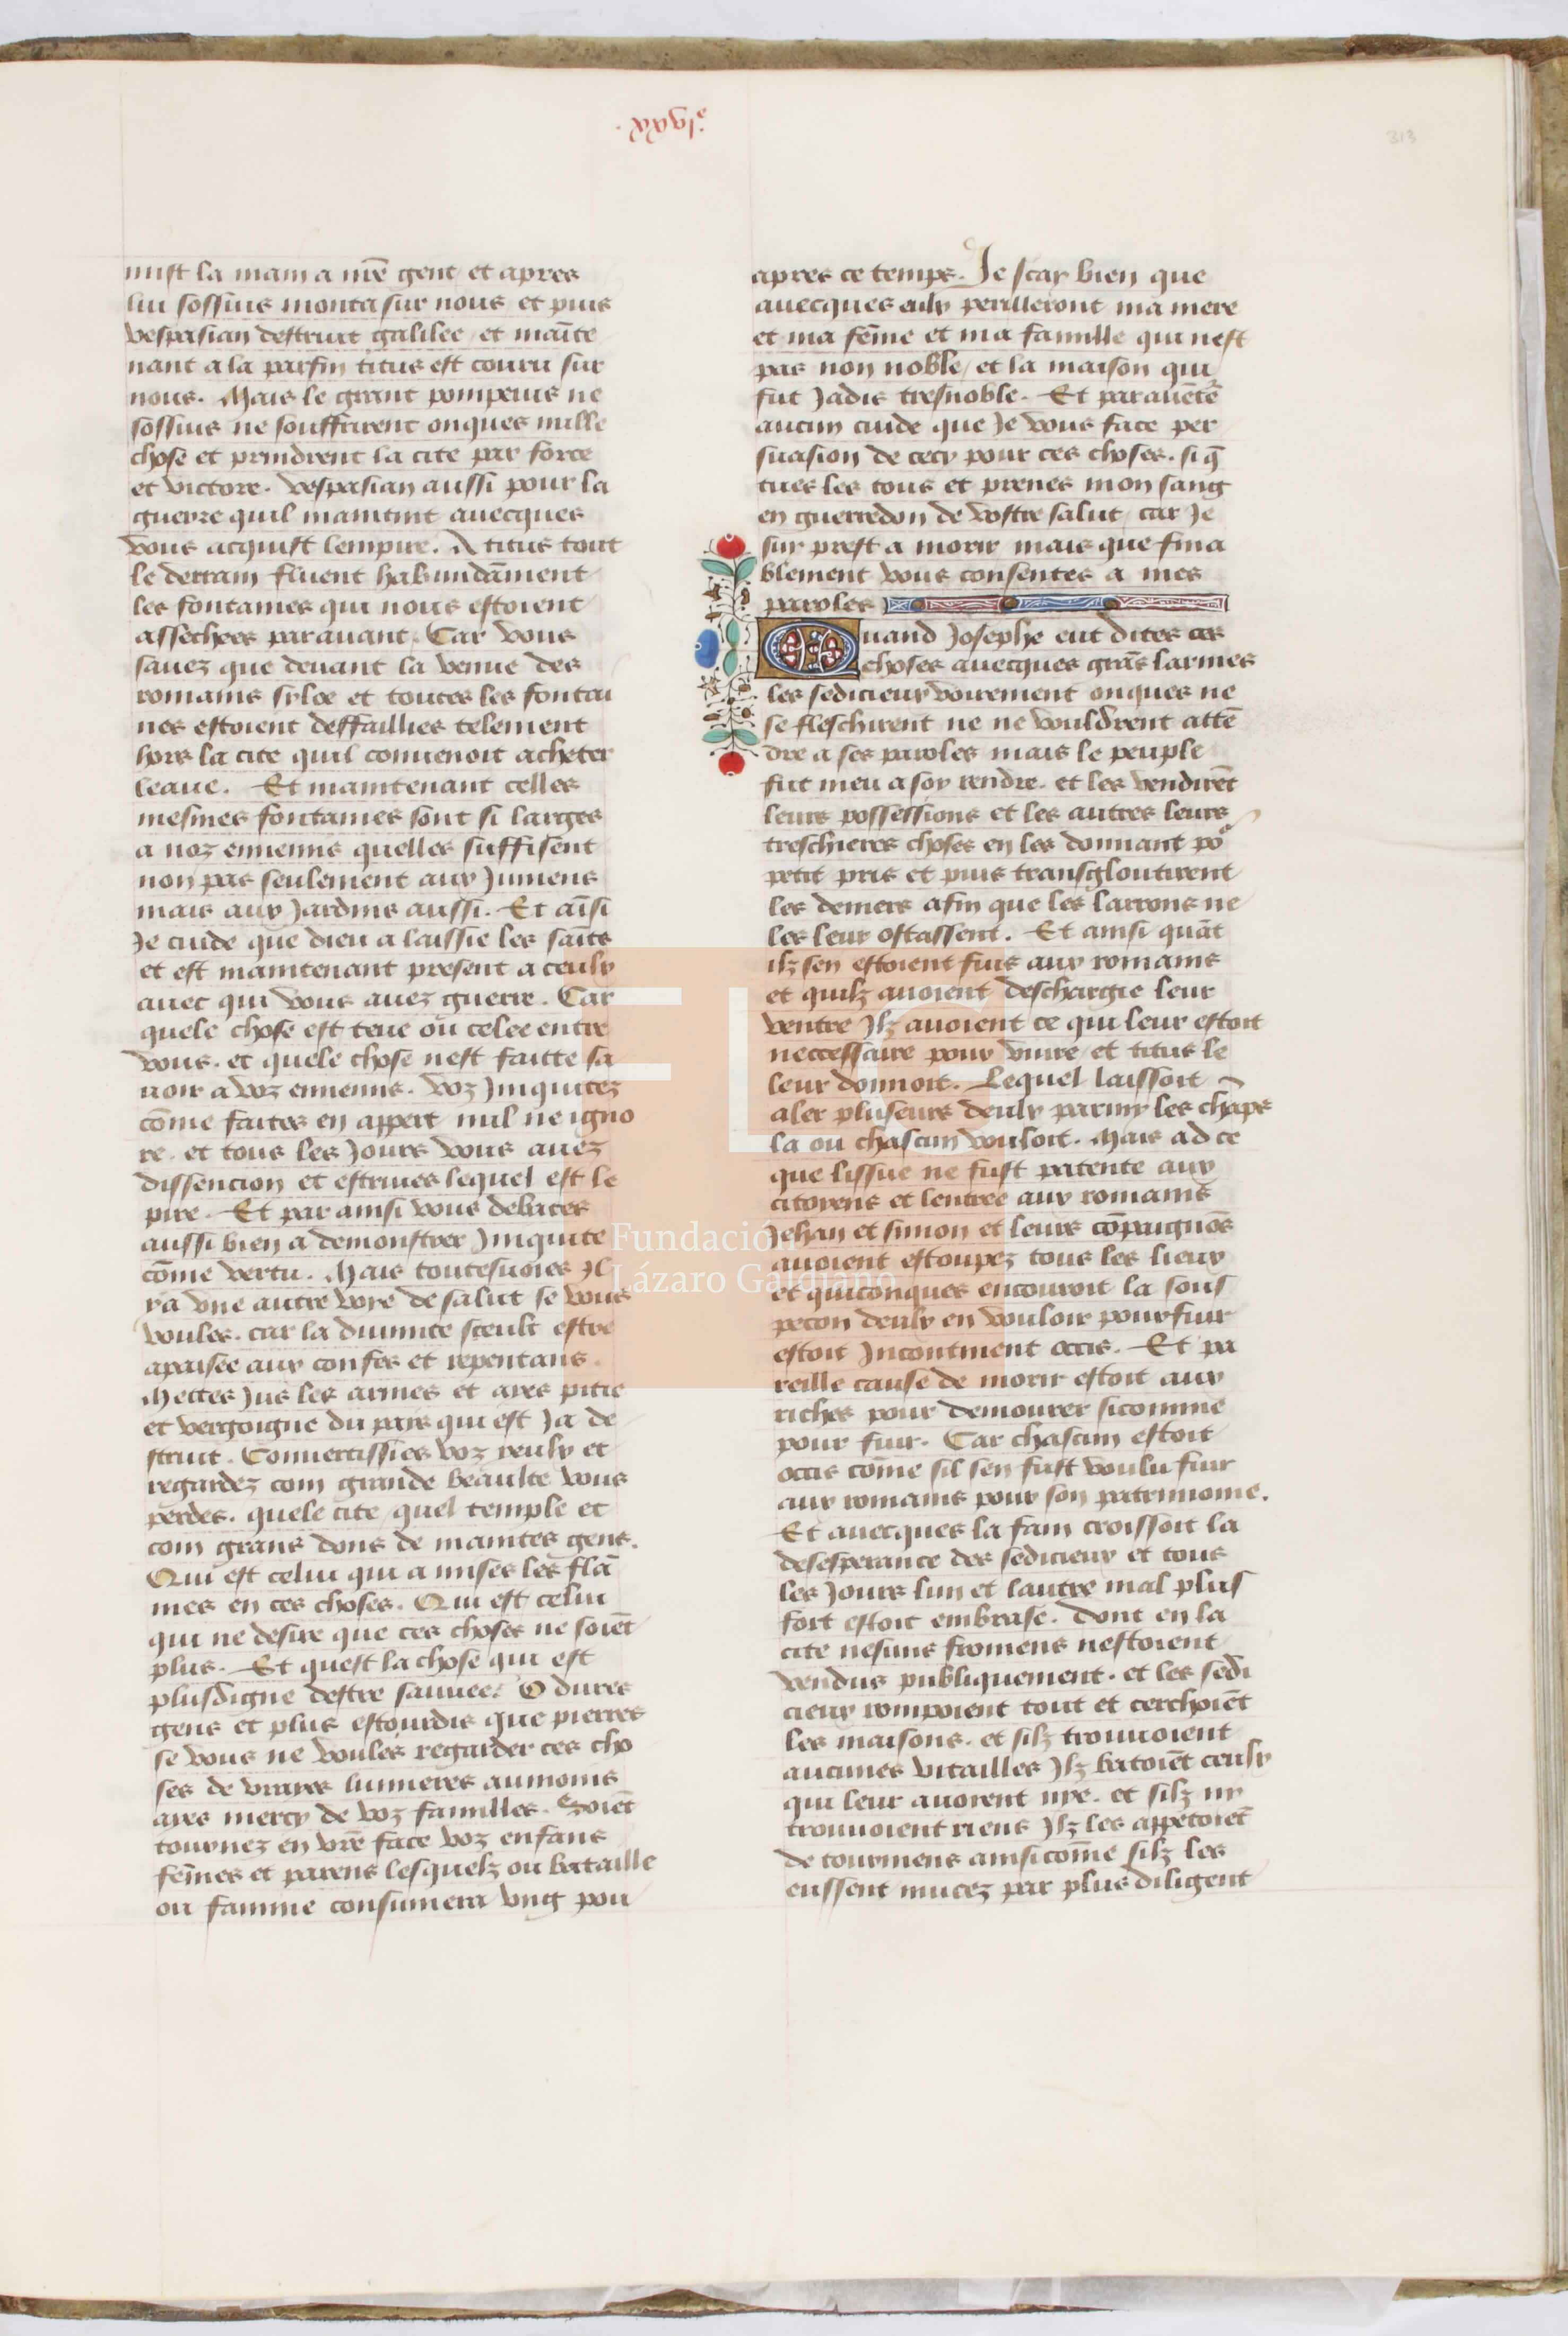 313
mist la main a nr̄e gent et apres
lui sossius monta sur nous et puis
vespasian destruit galilee et maīte
nant a la parfin titus est couru sur
nous. Mais le grant pompeius ne
sossius ne souffrirent onques nulle
chose et prindrent la cite par force
et victore. vespasian aussi pour la
guerre quil maintint auecques
vous acquist lempire. A titus tout
le derrain fluent habundāment
les fontaines qui nous estoient
assechees parauant. Car vous
sauez que deuant la venue des
romains syloe et toutes les fontai
nes estoient deffaillies telement
hors la cite quil conuenoit acheter
leaue. Et maintenant celles
mesmes fontaines sont si larges
a noz ennemis quelles suffisent
non pas seulement aux Jumens
mais aux Jardins aussi. Et aīsi
Je cuide que dieu a laissie les sāits
et est maintenant present a ceulx
auec qui vous auez guerre. Car
quele chose est teue ou celee entre
vous. et quele chose nest faitte sa
uoir a voz ennemis. voz Jniquitez
cōme faites en appert nul ne igno
re. et tous les Jours vous auez
dissencion et estriues lequel est le
pire. Et par ainsi vous debates
aussi bien a demonstrer Jniquite
cōme vertu. Mais toutesuoies Jl
ya vne autre voye de salut se vous
voules. car la diuinite sceult estre
apaisee aux confes et repentans.
Mettes Jus les armes et ayes pitie
et vergoigne du pays qui est Ja de
struit. Conuertissies voz yeulx et
regardez com grande beaulte vous
perdes. quele cite quel temple et
com grans dons de maintes gens.
Qui est celui qui a mises les flā
mes en ces choses. Qui est celui
qui ne desire que ces choses ne soiēt
plus. Et quest la chose qui est
plusdigne destre sauuee. O dures
gens et plus estourdis que pierres
se vous ne voules regarder ces cho
ses de vrayes lumieres aumoins
ayes mercy de voz familles. Soiēt
tournez en vr̄e face voz enfans
fēmes et parens lesquelz ou bataille
ou famine consumera vng pou
apres ce temps. Je scay bien que
auecques eulx perilleront ma mere
et ma fēme et ma famille qui nest
pas non noble et la maison qui
fut Jadis tresnoble. Et parauēte
aucun cuide que Je vous face per
suasion de cecy pour ces choses. si q̄
tues les tous et prenes mon sang
en guerredon de vostre salut car Je
suy prest a morir mais que fina
blement vous consentes a mes
paroles
Quand Josephe eut dites ces
choses auecques grās larmes
les sedicieux voirement onques ne
se fleschirent ne ne vouldrent attē
dre a ses paroles mais le peuple
fut meu a soy rendre. et les vendirēt
leurs possessions et les autres leurs
treschieres choses en les donnant po
petit pris et puis transgloutirent
les deniers afin que les larrons ne
les leur ostassent. Et ainsi quāt
ilz sen estoient fuis aux romains
et quilz auoient deschargie leur
ventre Jlz auoient ce qui leur estoit
neccessaire pour viure et titus le
leur donnoit. Lequel laissoit
aler pluseurs deulx parmy les chāps
la ou chascun vouloit. Mais ad ce
que lissue ne fust patente aux
citoyens et lentree aux romains
Jehan et simon et leurs cōpaignōs
auoient estoupez tous les lieux
et quiconques encouroit la sous
pecon deulx en vouloir pour fuir
estoit Jncontinent occis. Et pa
reille cause de morir estoit aux
riches pour demourer sicomme
pour fuir. Car chascun estoit
occis cōme sil sen fust voulu fuir
aux romains pour son patrimoine.
Et auecques la fain croissoit la
desesperance des sedicieux et tous
les Jours lun et lautre mal plus
fort estoit embrase. Dont en la
cite nesuns fromens nestoient
vendus publiquement. et les sedi
cieux rompoient tout et cerchoiēt
les maisons. et silz trouuoient
aucunes vitailles Jlz batoiēt ceulx
qui leur auoient nye. et silz ny
trouuoient riens Jlz les appetoiēt
de tourmens ainsicōme silz les
eussent mucez par plus diligent
Fundación
Lázaro Galdiano